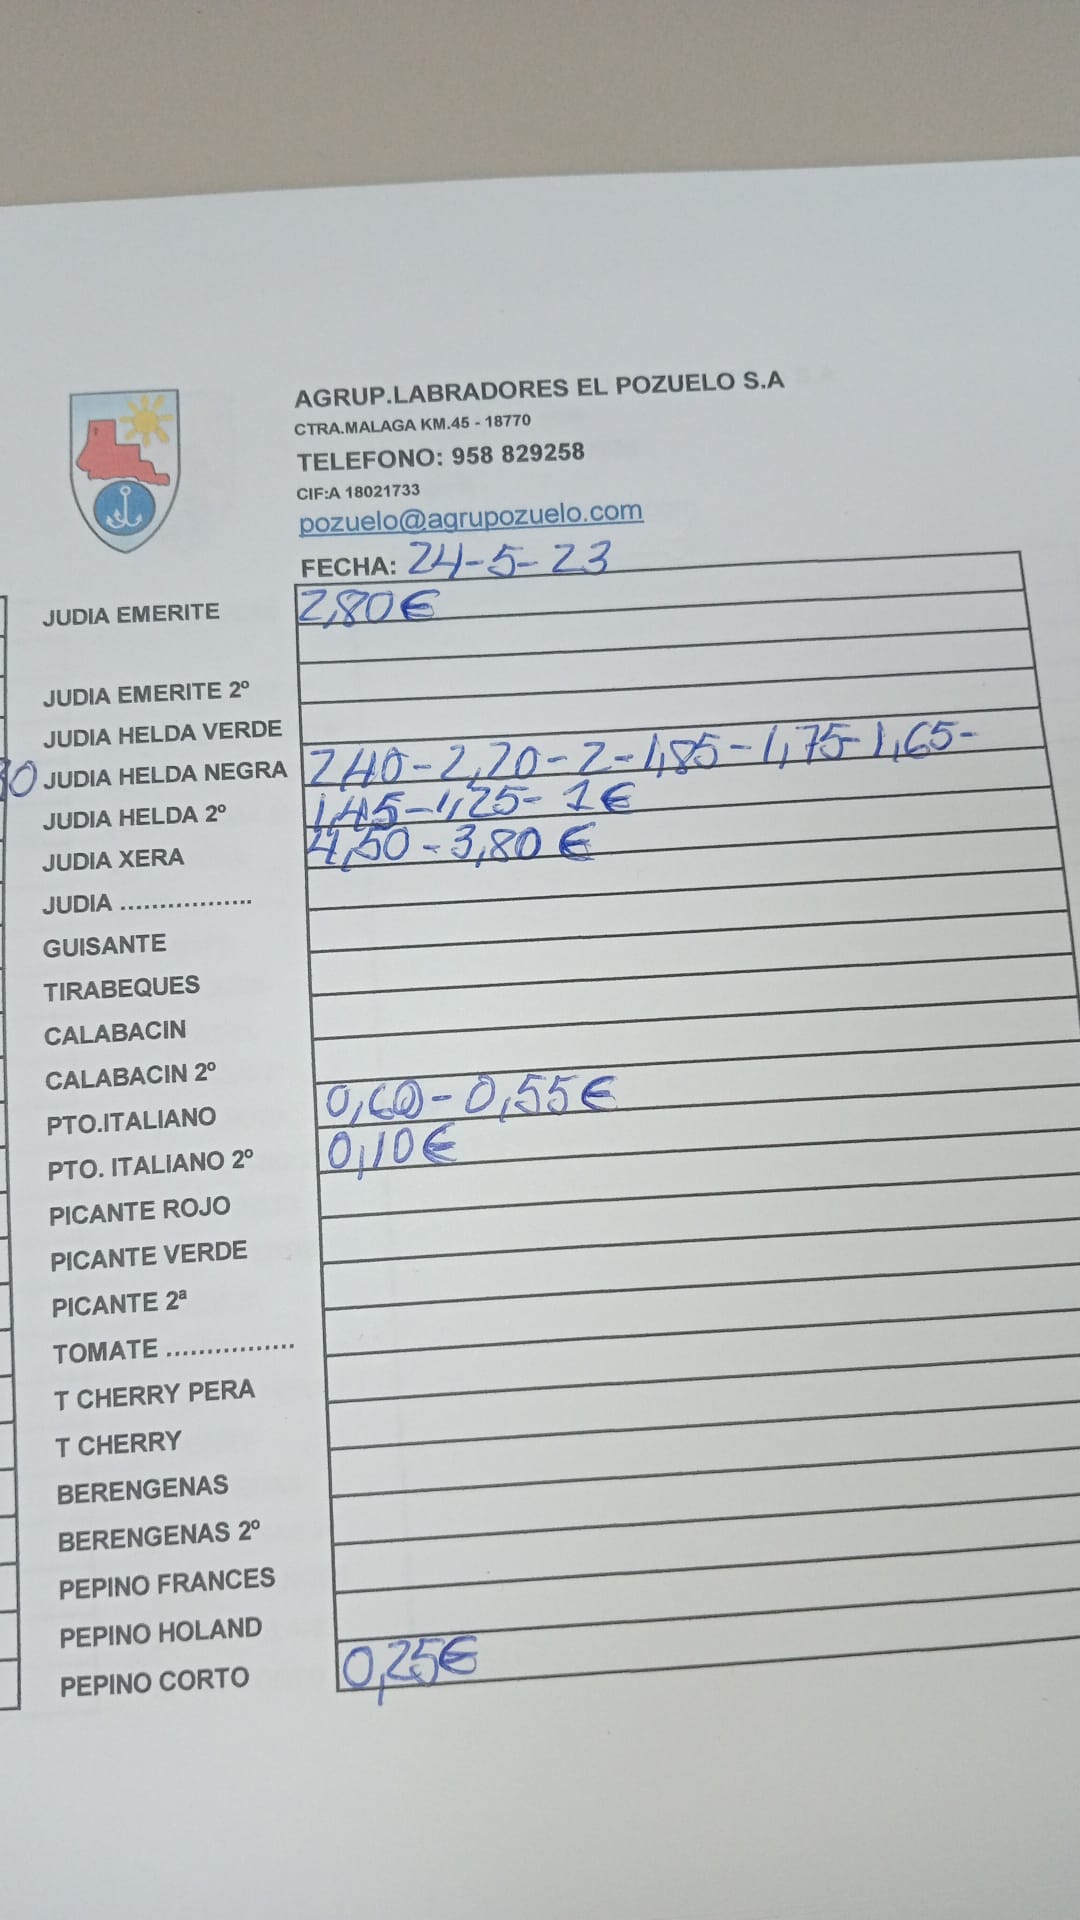 AGRUP.LABRADORES EL POZUELO S.A
CTRA.MALAGA KM.45 - 18770
TELEFONO: 958 829258
CIF:A 18021733
pozuelo@agrupozuelo.com
FECHA: 24-5-23
JUDIA EMERITE 2,80€
JUDIA EMERITE 2º
JUDIA HELDA VERDE
JUDIA HELDA NEGRA 2,40-2,20-2-1,85-1,75-1,65-
JUDIA HELDA 2º 1,45-1,25-1€
JUDIA XERA 4,50-3,80€
JUDIA .................
GUISANTE
TIRABEQUES
CALABACIN
CALABACIN 2º
PTO.ITALIANO 0,60-0,55€
PTO. ITALIANO 2º 0,10€
PICANTE ROJO
PICANTE VERDE
PICANTE 2ª
TOMATE ................
T CHERRY PERA
T CHERRY
BERENGENAS
BERENGENAS 2º
PEPINO FRANCES
PEPINO HOLAND
PEPINO CORTO 0,25€